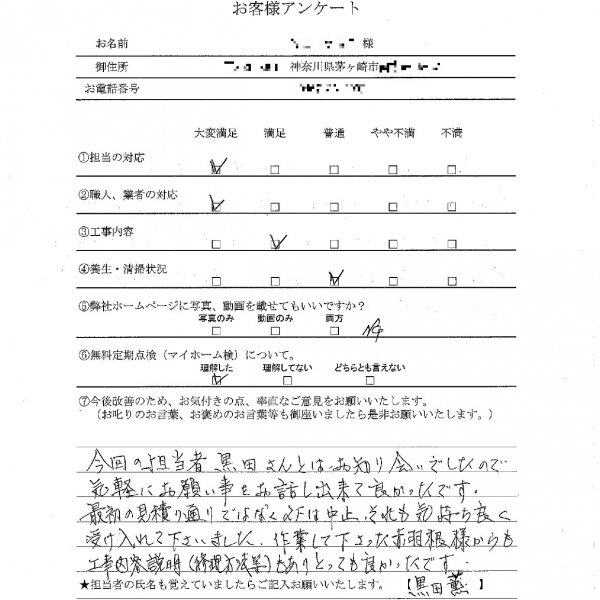 お客様アンケート
お名前 様
御住所 神奈川県茅ヶ崎市
お電話番号
大変満足 満足 普通 やや不満 不満
①担当の対応
②職人、業者の対応
③工事内容
④養生・清掃状況
⑤弊社ホームページに写真、動画を載せてもいいですか?
写真のみ 動画のみ 両方
⑥無料定期点検（マイホーム検）について。
理解した 理解してない どちらとも言えない
⑦今後改善のため、お気付きの点、率直なご意見をお願いいたします。
（お叱りのお言葉、お褒めのお言葉等も御座いましたら是非お願いいたします。）
今回の担当者黒田さんとはお知り会いでしたので
気軽にお願い事をお話し出来て良かったです。
最初の見積り通りではなく は中止、それも気持ち良く
受け入れて下さいました、作業して下さった赤羽根様からも
工事内容説明(修理方法等)もありとっても良かったです。
★担当者の氏名も覚えていましたらご記入お願いします。【黒田 薫】